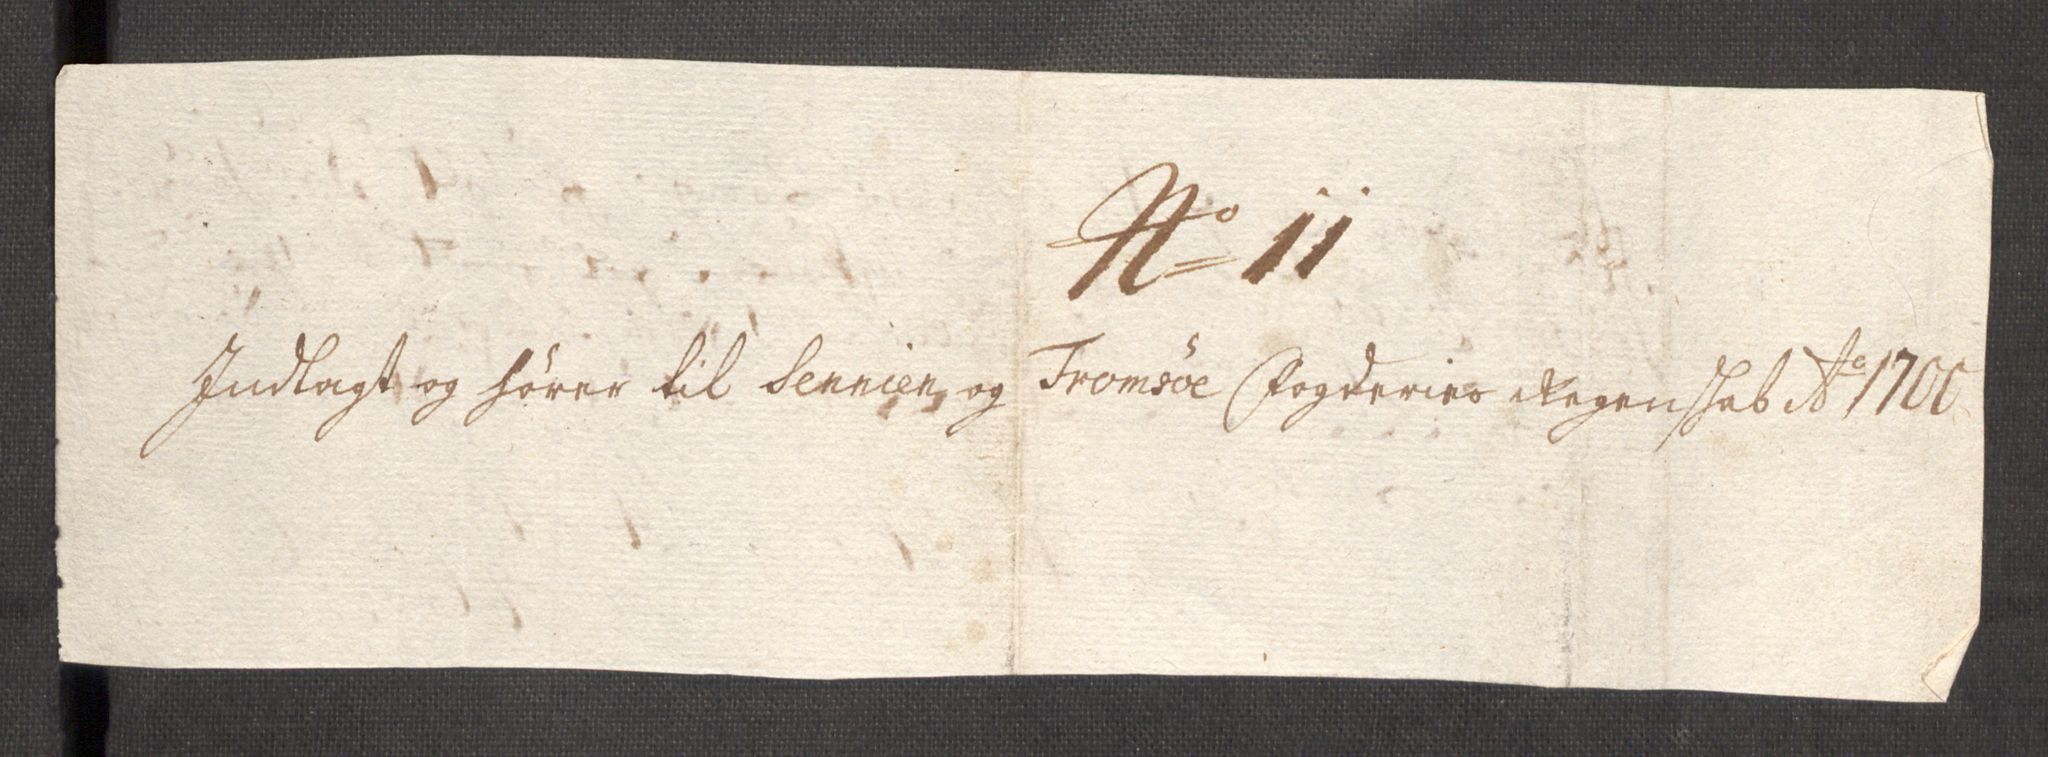 No 11
Indlagt og hörer til Sennien og Tromsöe Fogderies Regenskab Ao 1700